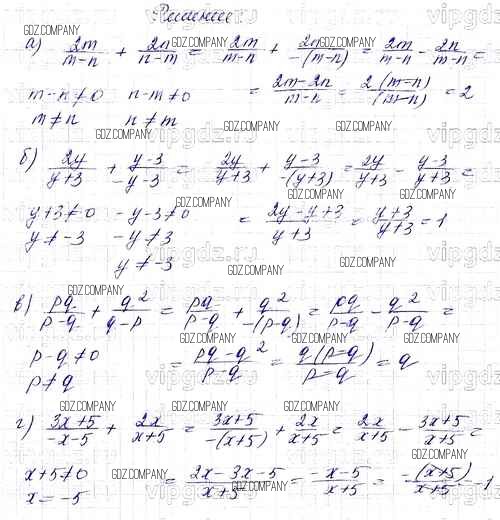 Решение:
а) 2m/(m-n) + 2n/(n-m) = 2m/(m-n) + 2n/(-(m-n)) = 2m/(m-n) - 2n/(m-n) =
m-n≠0 n-m≠0 = (2m-2n)/(m-n) = 2(m-n)/(m-n) = 2
m≠n n≠m
б) 2y/(y+3) + (y-3)/(-y-3) = 2y/(y+3) + (y-3)/(-(y+3)) = 2y/(y+3) - (y-3)/(y+3) =
y+3≠0 -y-3≠0 = (2y-y+3)/(y+3) = (y+3)/(y+3) = 1
y≠-3 -y≠3
y≠-3
в) pq/(p-q) + q²/(q-p) = pq/(p-q) + q²/(-(p-q)) = pq/(p-q) - q²/(p-q) =
p-q≠0 = (pq-q²)/(p-q) = q(p-q)/(p-q) = q
p≠q
г) (3x+5)/(-x-5) + 2x/(x+5) = (3x+5)/(-(x+5)) + 2x/(x+5) = 2x/(x+5) - (3x+5)/(x+5) =
x+5≠0 = (2x-3x-5)/(x+5) = (-x-5)/(x+5) = -(x+5)/(x+5) = -1
x=-5
GDZ.COMPANY
vipgdz.ru